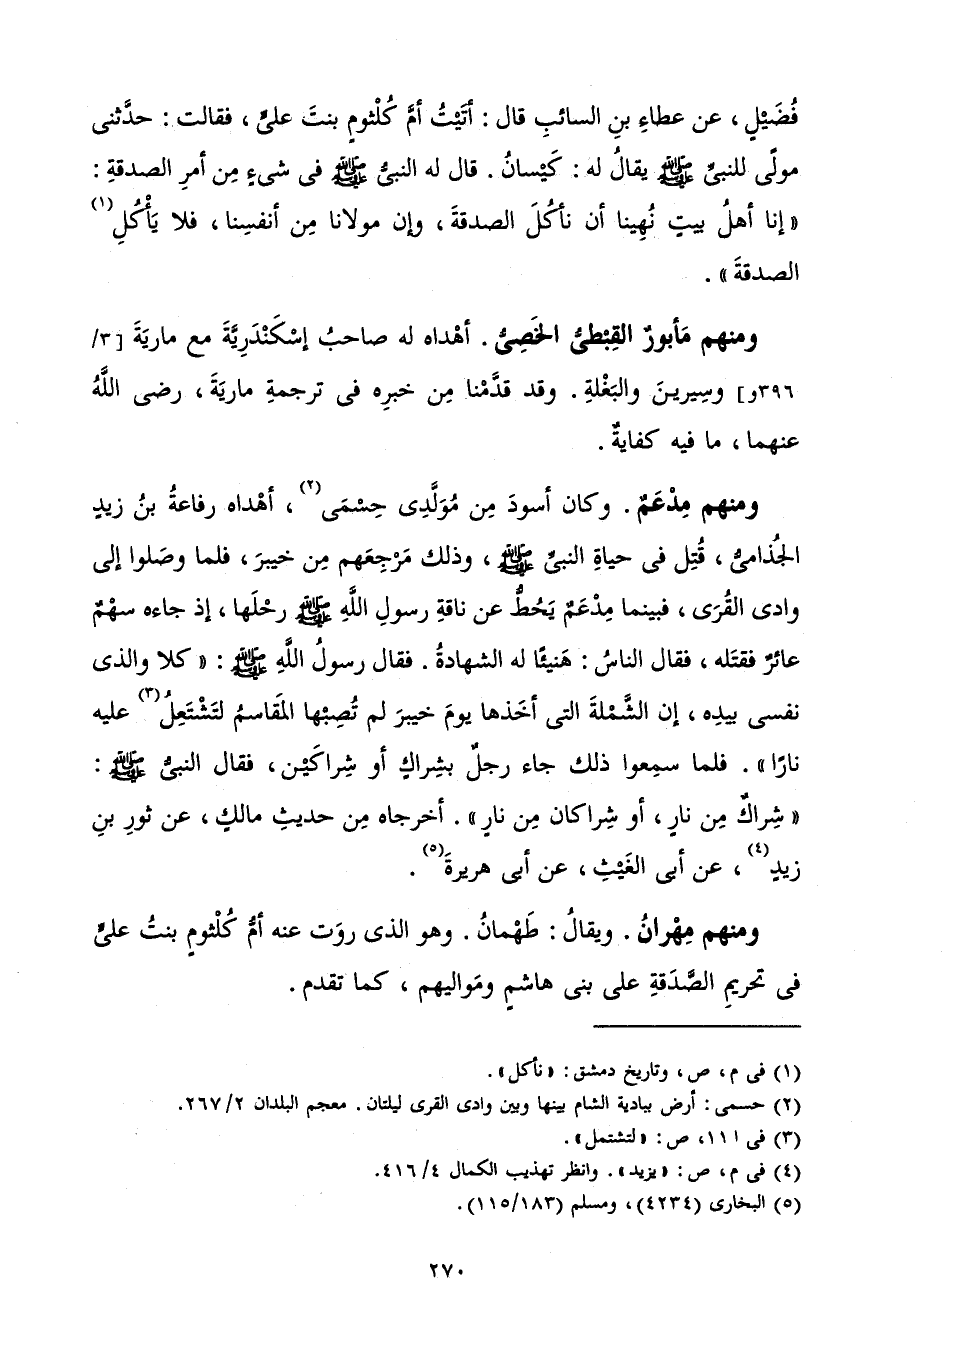 فُضَيْلٍ، عن عطاءِ بنِ السائبِ قال: أتَيْتُ أمَّ كُلْثومٍ بنتَ علىٍّ، فقالت: حدَّثنى
مولًى للنبىِّ ﷺ يقالُ له: كَيْسانُ. قال له النبىُّ ﷺ فى شىءٍ مِن أمرِ الصدقةِ:
«إنا أهلُ بيتٍ نُهِينا أن نأكُلَ الصدقةَ، وإن مولانا مِن أنفسِنا، فلا يَأْكُلِ(١)
الصدقةَ».
ومنهم مَأبورٌ القِبْطىُّ الخَصِىُّ. أهْداه له صاحبُ إسْكَنْدَرِيَّةَ مع مارِيَةَ [٣/
٣٩٦و] وسِيرينَ والبَغْلةِ. وقد قدَّمْنا مِن خبرِه فى ترجمةِ ماريَةَ، رضى اللَّهُ
عنهما، ما فيه كفايةٌ.
ومنهم مِدْعَمٌ. وكان أسودَ مِن مُوَلَّدِى حِسْمَى(٢)، أهْداه رفاعةُ بنُ زيدٍ
الجُذامىُّ، قُتِل فى حياةِ النبىِّ ﷺ، وذلك مَرْجِعَهم مِن خيبرَ، فلما وصَلوا إلى
وادى القُرَى، فبينما مِدْعَمٌ يَحُطُّ عن ناقةِ رسولِ اللَّهِ ﷺ رحْلَها، إذ جاءه سهْمٌ
عائرٌ فقتَله، فقال الناسُ: هَنيئًا له الشهادةُ. فقال رسولُ اللَّهِ ﷺ: «كلا والذى
نفسى بيدِه، إن الشَّمْلةَ التى أخَذها يومَ خيبرَ لم تُصِبْها المَقاسمُ لتَشْتَعِلُ(٣) عليه
نارًا». فلما سمِعوا ذلك جاء رجلٌ بشِراكٍ أو شِراكَيْن، فقال النبىُّ ﷺ:
«شِراكٌ مِن نارٍ، أو شِراكان مِن نارٍ». أخرجاه مِن حديثِ مالكٍ، عن ثورِ بنِ
زيدٍ(٤)، عن أبى الغَيْثِ، عن أبى هريرةَ(٥).
ومنهم مِهْرانُ. ويقالُ: طَهْمانُ. وهو الذى روَت عنه أمُّ كُلْثومٍ بنتُ علىٍّ
فى تحريمِ الصَّدَقةِ على بنى هاشمٍ ومَواليهم، كما تقدم.
(١) فى م، ص، وتاريخ دمشق: «نأكل».
(٢) حسمى: أرض ببادية الشام بينها وبين وادى القرى ليلتان. معجم البلدان ٢/ ٢٦٧.
(٣) فى ا ١١، ص: «لتشتمل».
(٤) فى م، ص: «يزيد». وانظر تهذيب الكمال ٤/ ٤١٦.
(٥) البخارى (٤٢٣٤)، ومسلم (١١٥/١٨٣).
٢٧٠